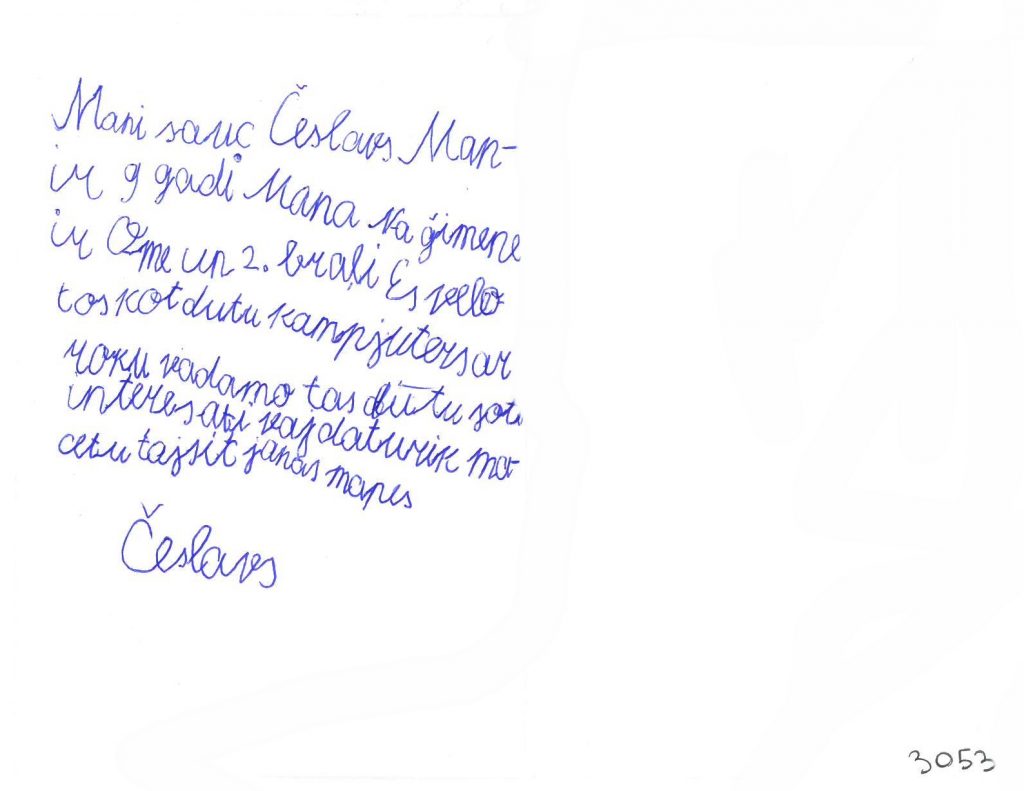 Mani sauc Česlavs Man-
ir 9 gadi Mana ģimene
ir Ome un 2. braļi Es vēlo
tos kot dutu kampjūters ar
roku vadamo tas būtu ļoti
interesati
cetu tajsit janas mapes
Česlavs
3053